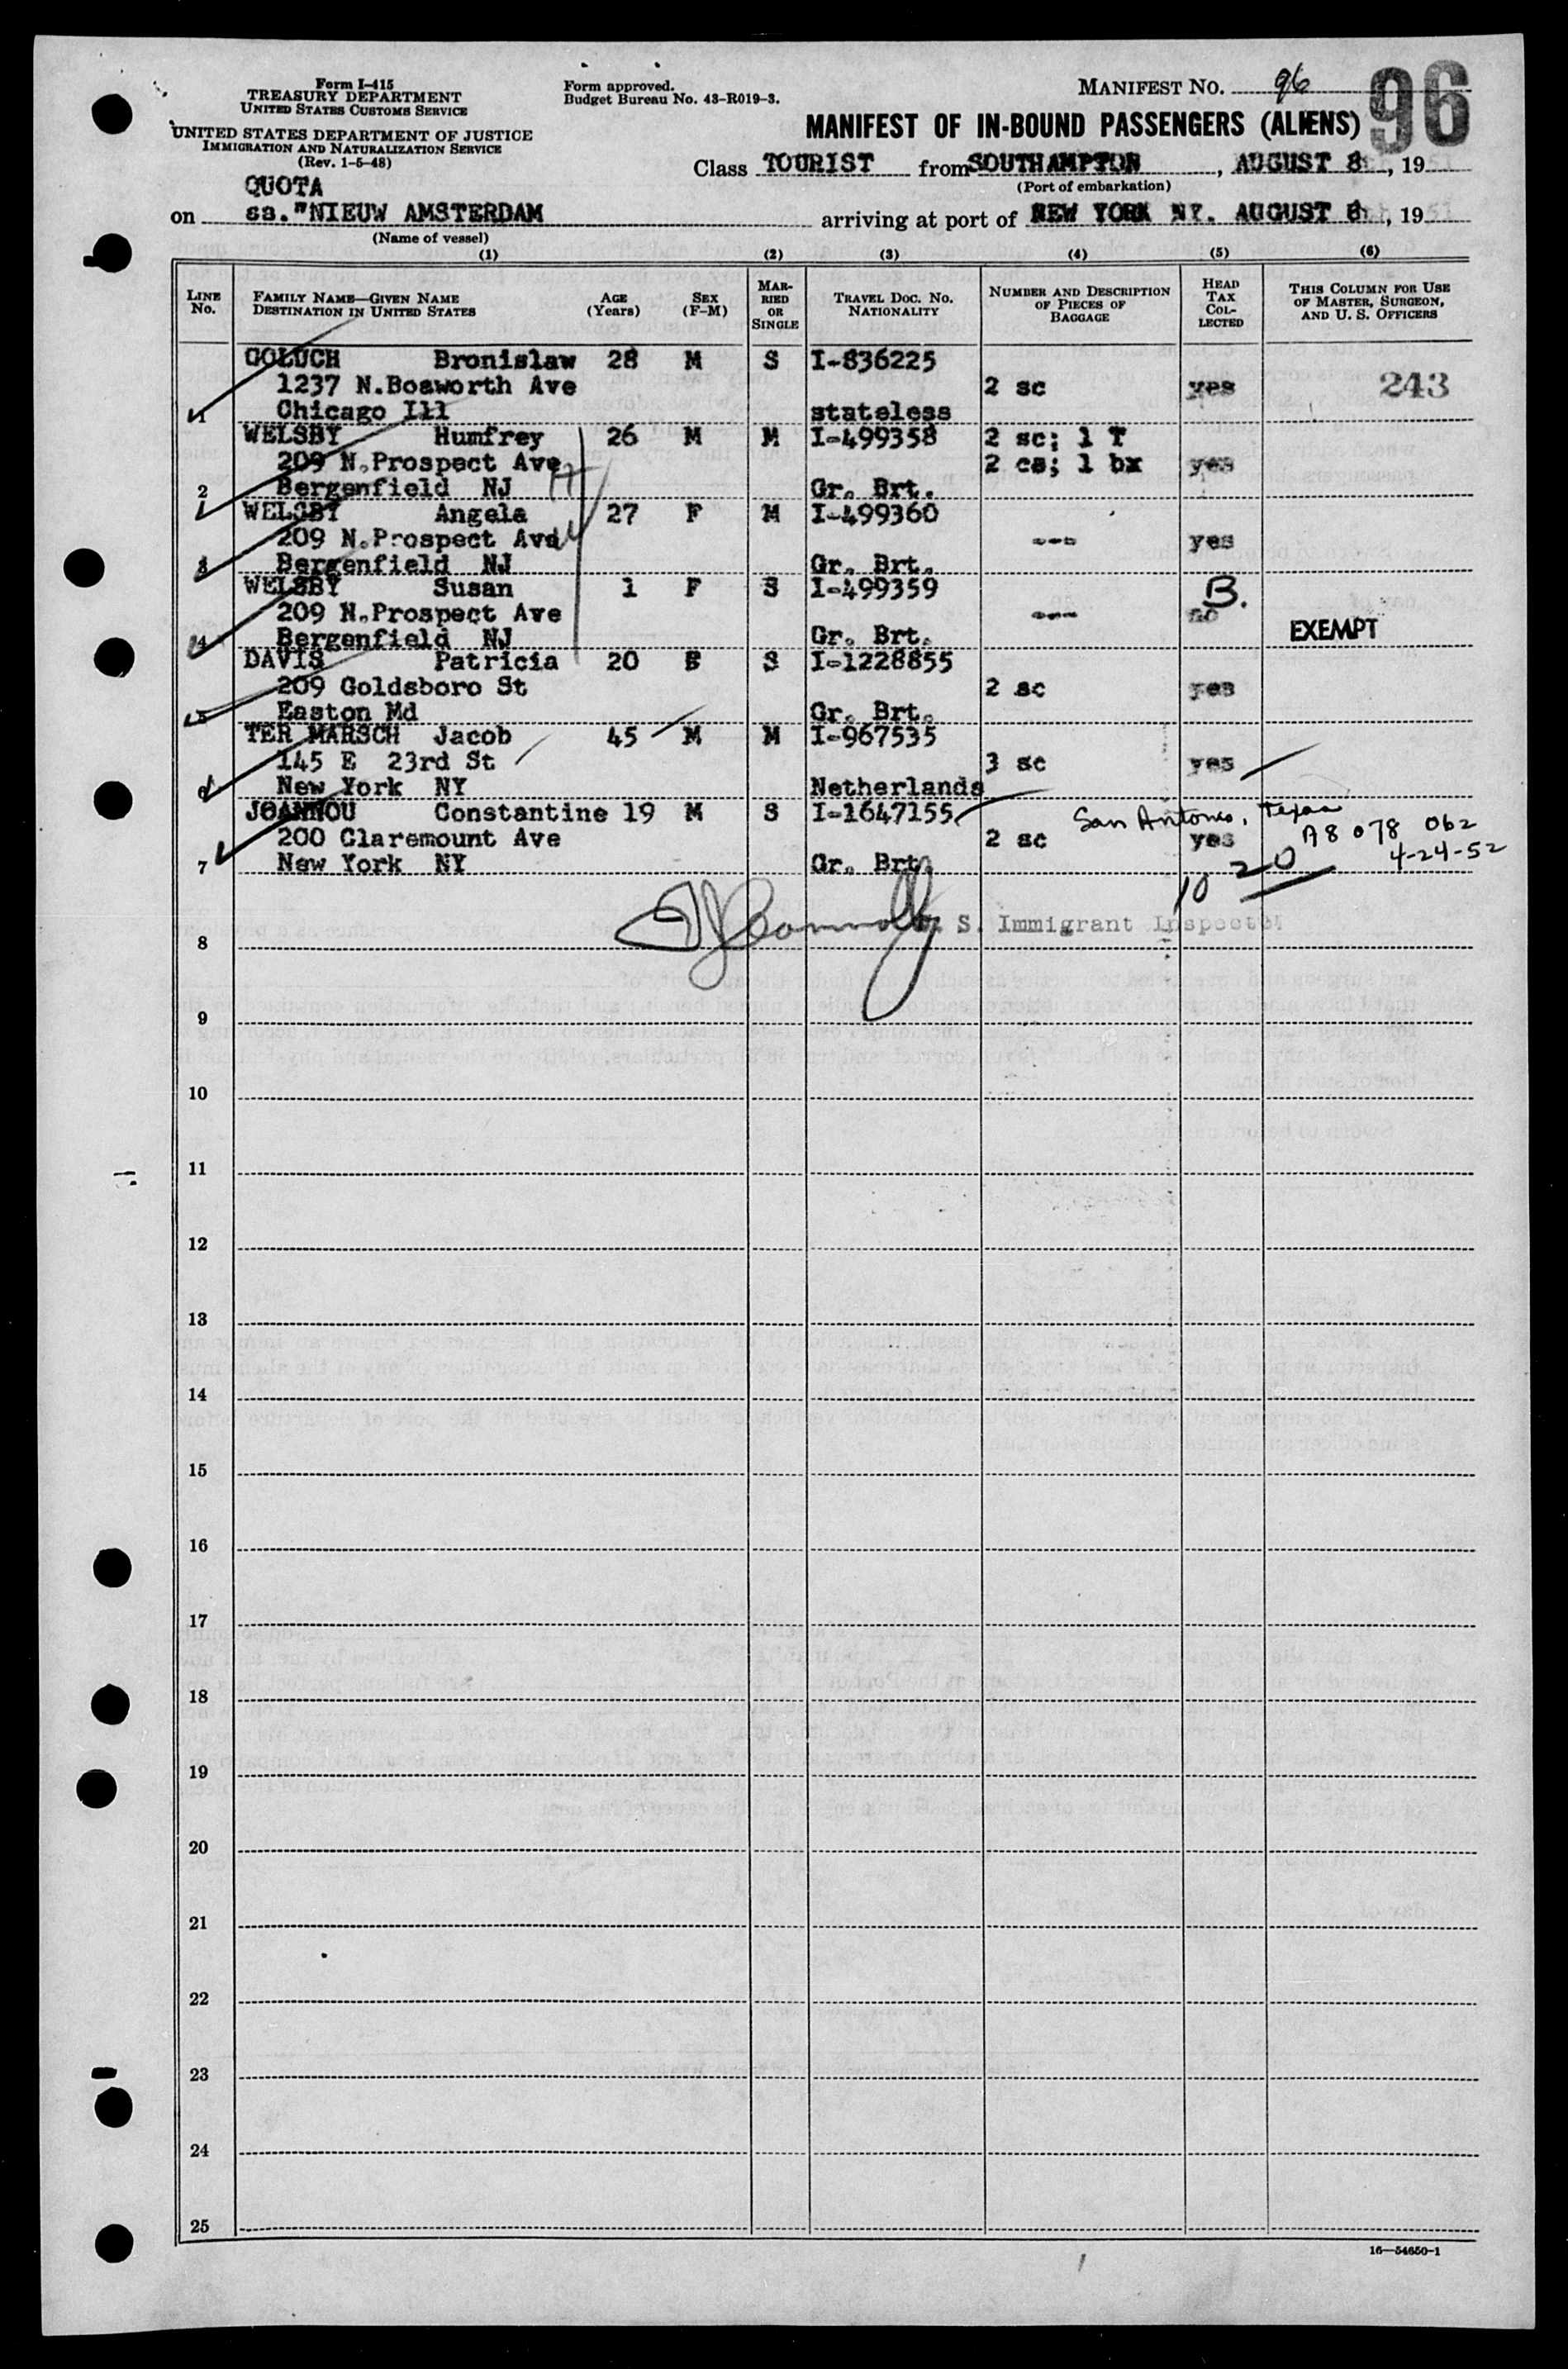 Form I-415
TREASURY DEPARTMENT
UNITED STATES CUSTOMS SERVICE
UNITED STATES DEPARTMENT OF JUSTICE
IMMIGRATION AND NATURALIZATION SERVICE
(Rev. 1-5-48)
Form approved.
Budget Bureau No. 43-R019-3.
MANIFEST NO. 96
96
MANIFEST OF IN-BOUND PASSENGERS (ALIENS)
Class TOURIST from SOUTHAMPTON, AUGUST 8, 19
(Port of embarkation)
QUOTA
on ss."NIEUW AMSTERDAM arriving at port of NEW YORK NY. AUGUST 8, 19
(Name of vessel)
(1) (2) (3) (4) (5) (6)
LINE No. FAMILY NAME—GIVEN NAME DESTINATION IN UNITED STATES AGE (Years) SEX (F-M) MARRIED OR SINGLE TRAVEL DOC. NO. NATIONALITY NUMBER AND DESCRIPTION OF PIECES OF BAGGAGE HEAD TAX COLLECTED THIS COLUMN FOR USE OF MASTER, SURGEON, AND U. S. OFFICERS
GOLUCH Bronislaw 28 M S I-836225
1237 N.Bosworth Ave 2 sc yes 243
1 Chicago Ill stateless
WELSBY Humfrey 26 M M I-499358 2 sc; 1 T
209 N.Prospect Ave 2 cs; 1 bx yes
2 Bergenfield NJ Gr. Brt.
WELSBY Angela 27 F M I-499360
209 N.Prospect Ave --- yes
3 Bergenfield NJ Gr. Brt.
WELSBY Susan 1 F S I-499359 B.
209 N.Prospect Ave --- no
4 Bergenfield NJ Gr. Brt. EXEMPT
DAVIS Patricia 20 F S I-1228855
209 Goldsboro St 2 sc yes
5 Easton Md Gr. Brt.
TER MARSCH Jacob 45 M M I-967535
145 E 23rd St 3 sc yes
6 New York NY Netherlands
JOANNOU Constantine 19 M S I-1647155 San Antonio, Texas
200 Claremount Ave 2 sc yes A8 078 062
7 New York NY Gr. Brt. 4-24-52
10 20
8 U. S. Immigrant Inspector
9
10
11
12
13
14
15
16
17
18
19
20
21
22
23
24
25
16—54650-1